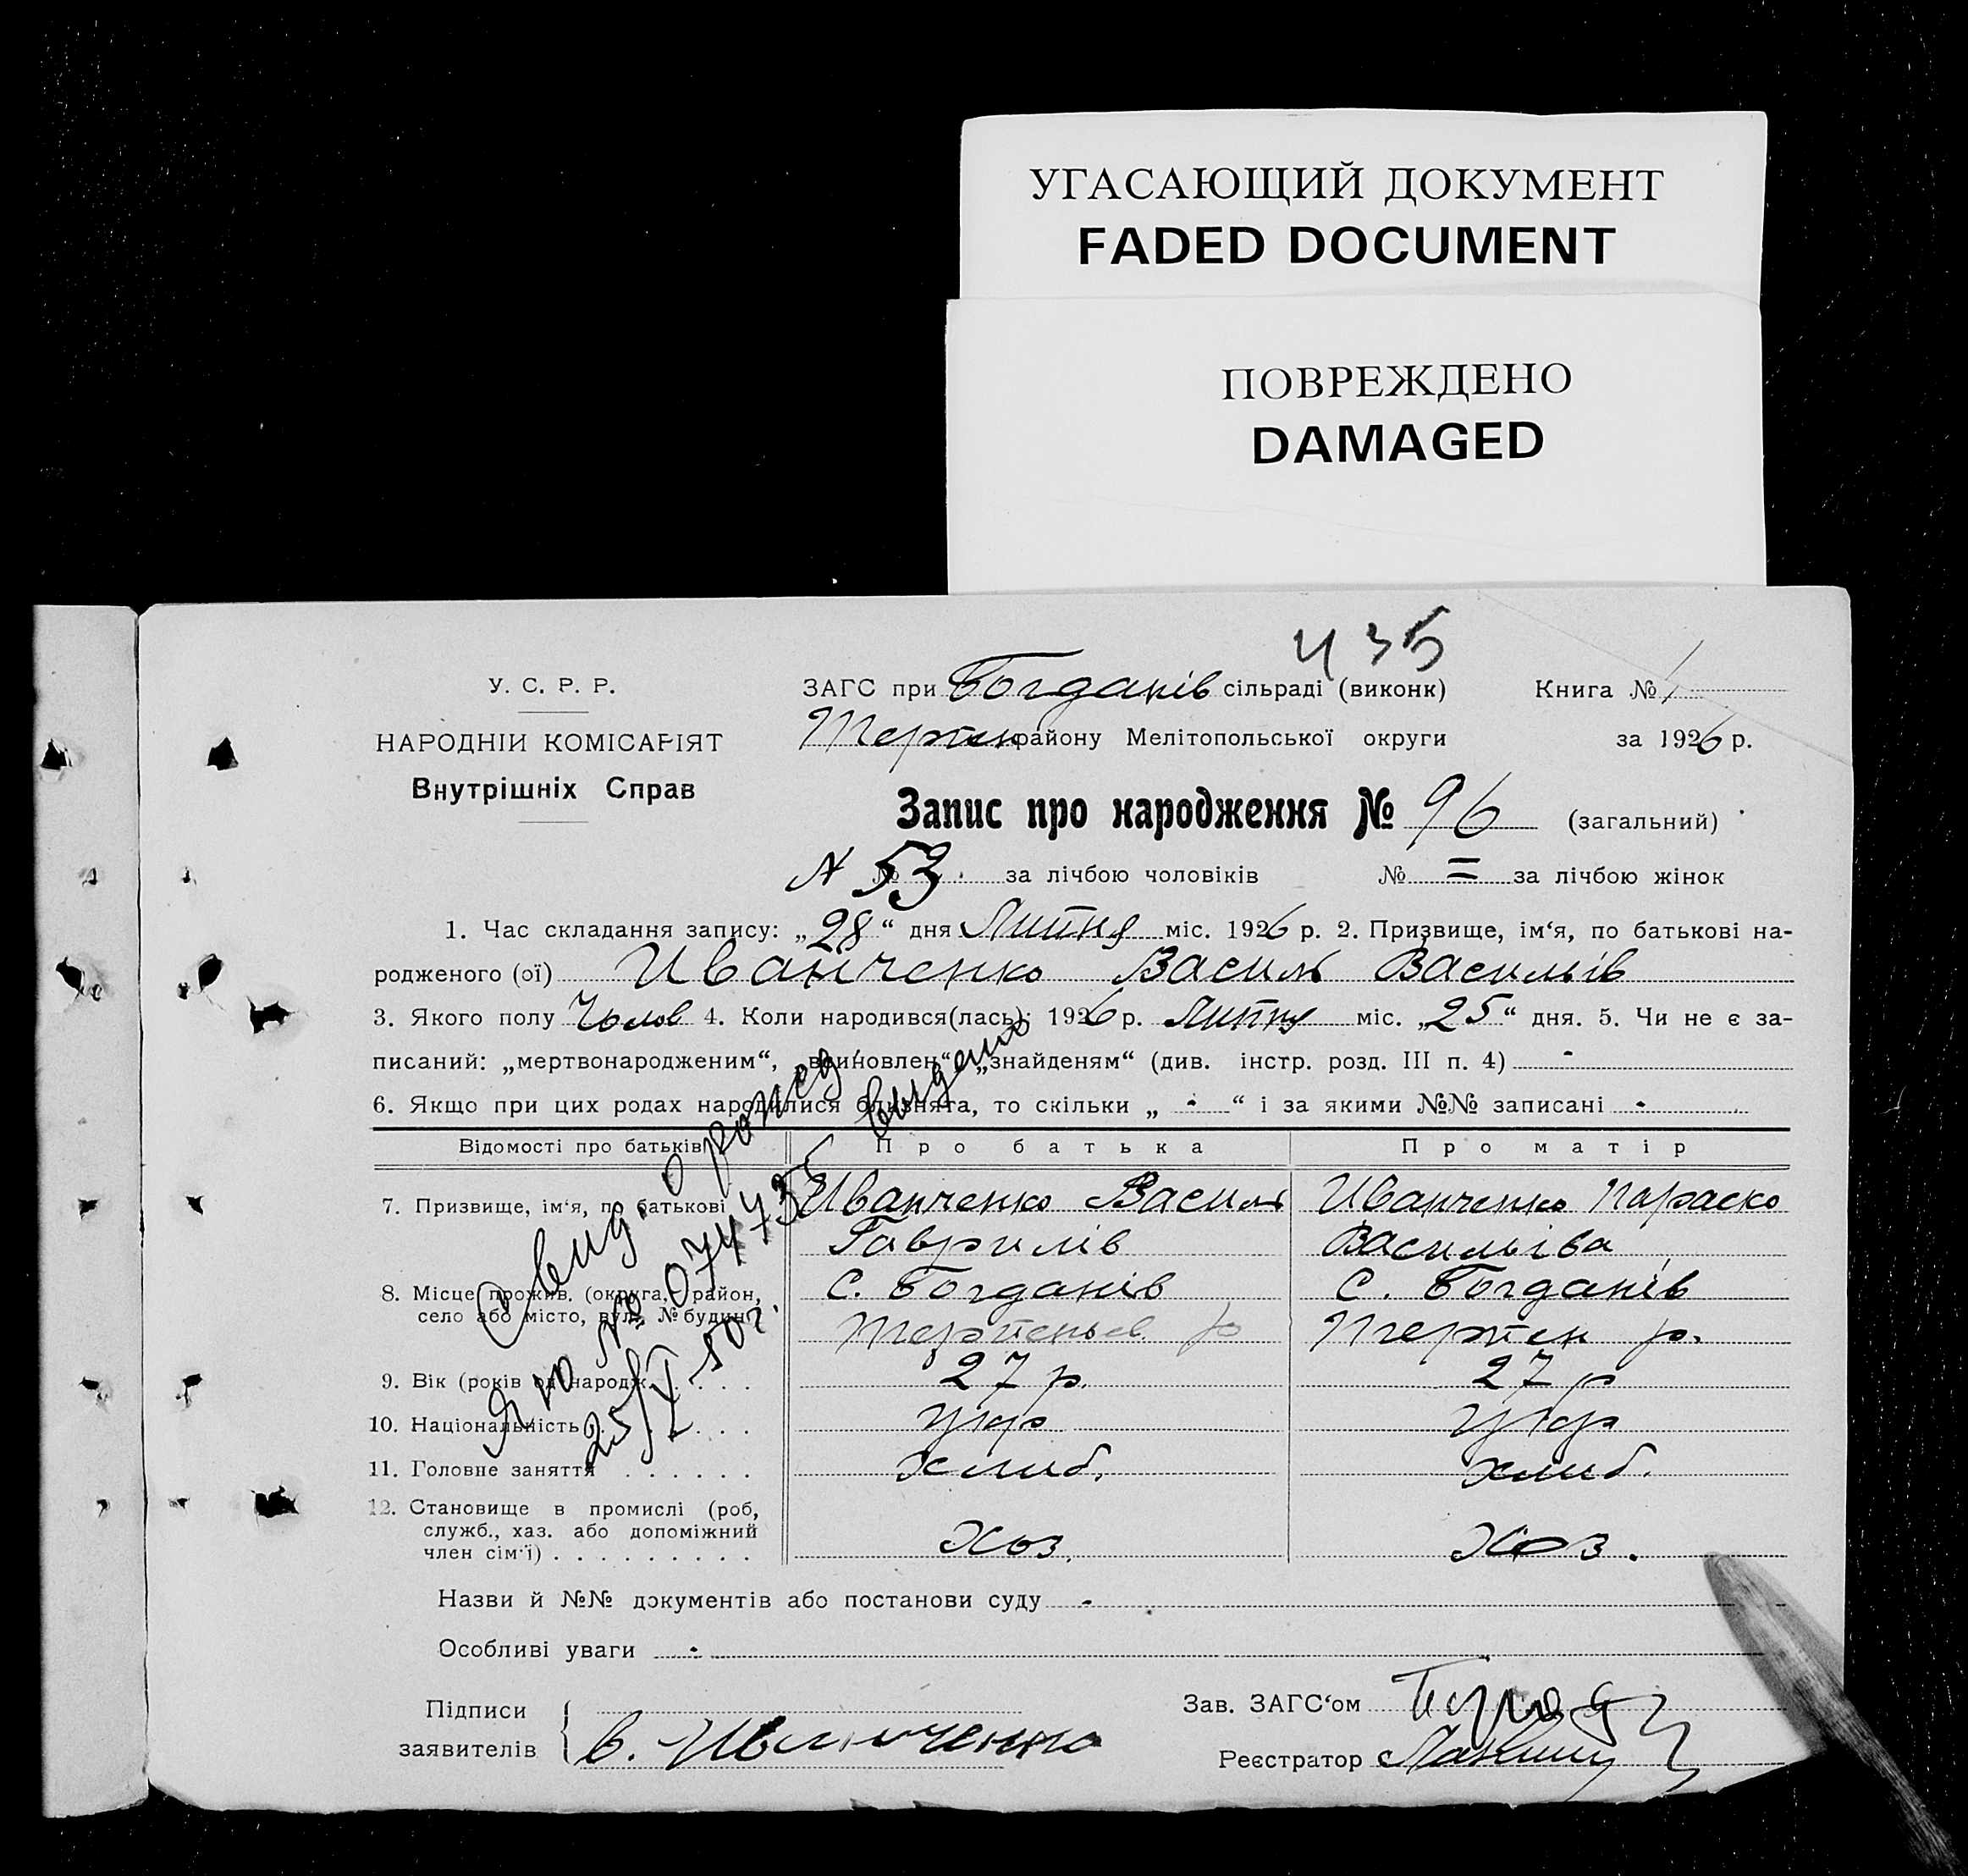 УГАСАЮЩИЙ ДОКУМЕНТ
FADED DOCUMENT
ПОВРЕЖДЕНО
DAMAGED
435
У. С. Р. Р.
НАРОДНІЙ КОМІСАРІЯТ
Внутрішніх Справ
ЗАГС при Богданів сільраді (виконк) Книга № 1
Терпен району Мелітопольської округи за 1926 р.
Запис про народження № 96 (загальний)
№ 53 за лічбою чоловіків № = за лічбою жінок
1. Час складання запису: „28“ дня Липня міс. 1926 р. 2. Призвище, ім‘я, по батькові на-
родженого (ої) Иванченко Василь Васильів
3. Якого полу Чолов 4. Коли народився(лась): 1926 р. Липня міс. „25“ дня. 5. Чи не є за-
писаний: „мертвонародженим“, „вриновлен“ „знайденям“ (див. інстр. розд. III п. 4) -
6. Якщо при цих родах народилися близнята, то скільки „ - “ і за якими №№ записані -
Відомості про батьків Про батька Про матір
7. Призвище, ім‘я, по батькові Иванченко Василь Иванченко Параско
Гаврилів Васильіва
8. Місце прожив. (округа, район, С. Богданів С. Богданів
село або місто, вул., № будин.) Терпеньев р Терпен р.
9. Вік (років од народж. 27 р. 27 р
10. Національність укр укр
11. Головне заняття хлиб. хлиб.
12. Становище в промислі (роб,
служб., хаз. або допоміжний
член сім‘ї) Хоз. Хоз.
Свид. о рожед. выдано
25/V-50г.
Назви й №№ документів або постанови суду -
Особливі уваги -
Підписи
заявителів В. Иванченко
Зав. ЗАГС‘ом
Реєстратор